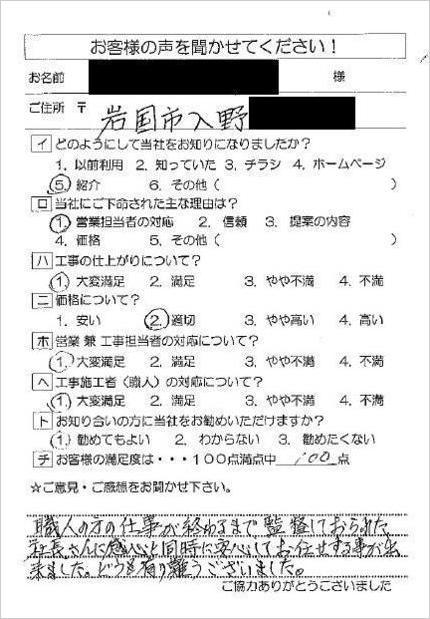 お客様の声を聞かせてください！
お名前 様
ご住所 〒 岩国市入野
イ どのようにして当社をお知りになりましたか？
1. 以前利用 2. 知っていた 3. チラシ 4. ホームページ
5. 紹介 6. その他（ ）
ロ 当社にご下命された主な理由は？
1. 営業担当者の対応 2. 信頼 3. 提案の内容
4. 価格 5. その他（ ）
ハ 工事の仕上がりについて？
1. 大変満足 2. 満足 3. やや不満 4. 不満
ニ 価格について？
1. 安い 2. 適切 3. やや高い 4. 高い
ホ 営業 兼 工事担当者の対応について？
1. 大変満足 2. 満足 3. やや不満 4. 不満
ヘ 工事施工者（職人）の対応について？
1. 大変満足 2. 満足 3. やや不満 4. 不満
ト お知り合いの方に当社をお勧めいただけますか？
1. 勧めてもよい 2. わからない 3. 勧めたくない
チ お客様の満足度は・・・100点満点中 100 点
☆ご意見・ご感想をお聞かせ下さい。
職人の方の仕事が終わるまで監督しておられた
社長さんに感心と同時に安心してお任せする事が出
来ました。どうも有り難うございました。
ご協力ありがとうございました